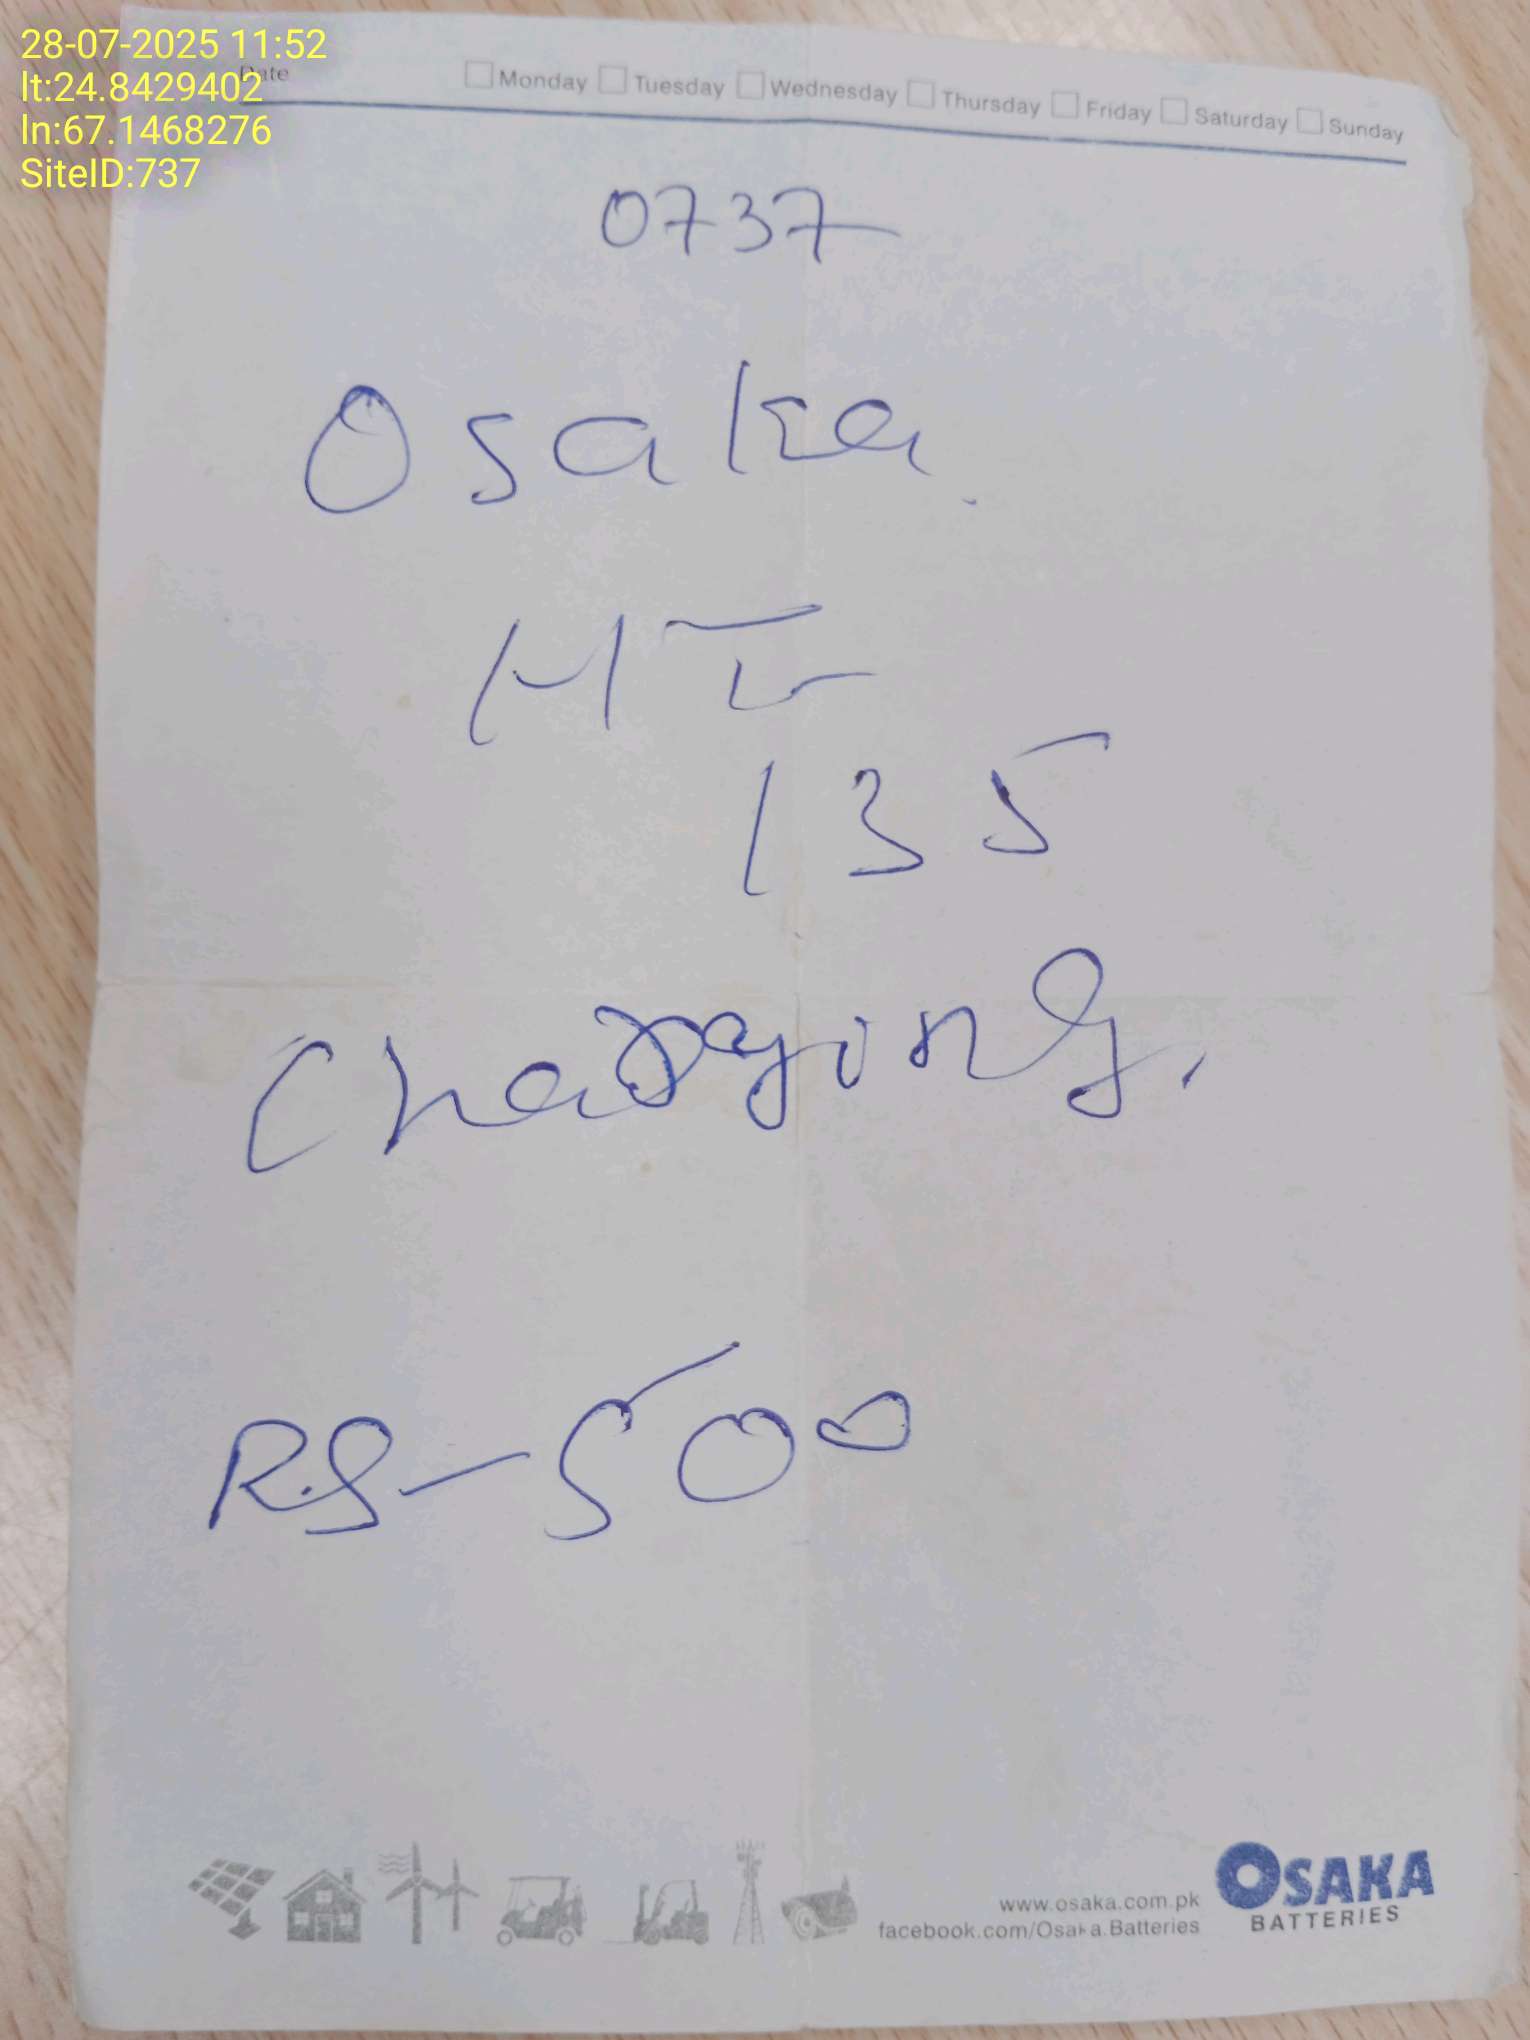 28-07-2025 11:52
lt:24.8429402
ln:67.1468276
SiteID:737
Date Monday Tuesday Wednesday Thursday Friday Saturday Sunday
0737
Osaka.
135
Charging.
RS-500
www.osaka.com.pk
facebook.com/Osaka.Batteries
OSAKA
BATTERIES